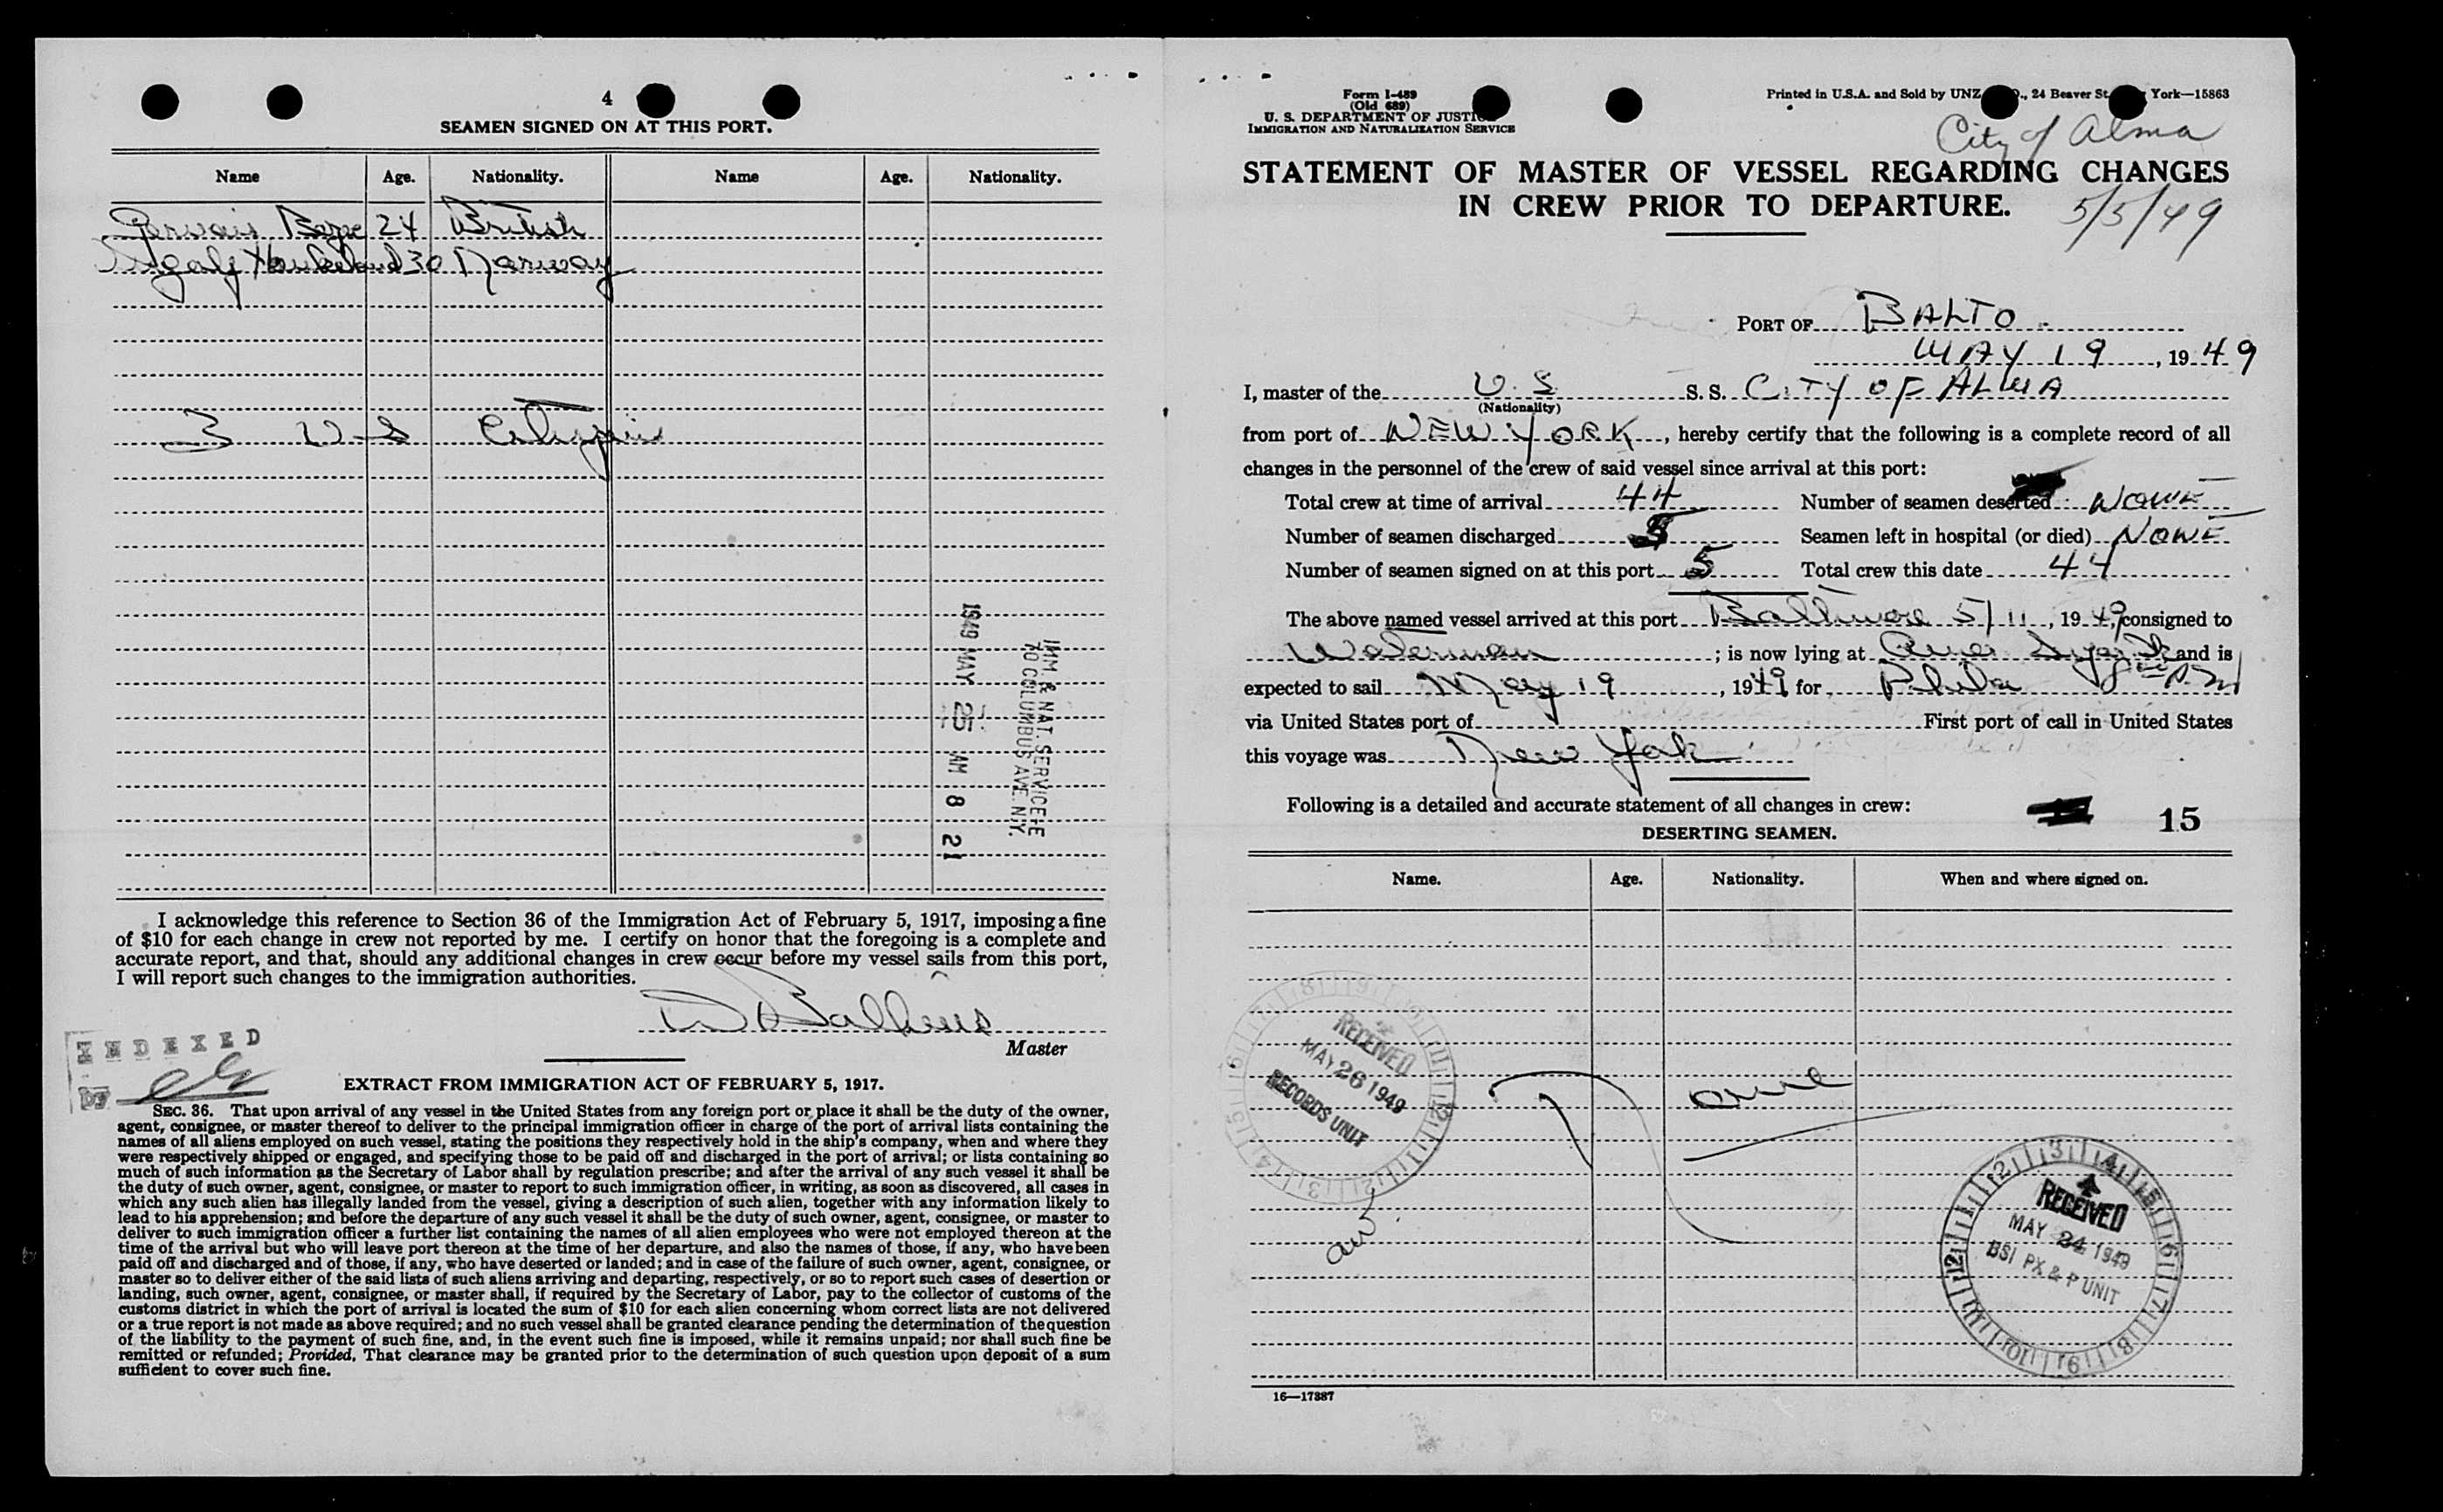 4
SEAMEN SIGNED ON AT THIS PORT.
Name Age. Nationality. Name Age. Nationality.
Gervais 24 British
30 Norway
3 U S Citizens
1949 MAY 25 AM 8 21
IMM. & NAT. SERVICE
70 COLUMBUS AVE. N.Y.
I acknowledge this reference to Section 36 of the Immigration Act of February 5, 1917, imposing a fine
of $10 for each change in crew not reported by me. I certify on honor that the foregoing is a complete and
accurate report, and that, should any additional changes in crew occur before my vessel sails from this port,
I will report such changes to the immigration authorities.
Master
INDEXED
by
EXTRACT FROM IMMIGRATION ACT OF FEBRUARY 5, 1917.
SEC. 36. That upon arrival of any vessel in the United States from any foreign port or place it shall be the duty of the owner,
agent, consignee, or master thereof to deliver to the principal immigration officer in charge of the port of arrival lists containing the
names of all aliens employed on such vessel, stating the positions they respectively hold in the ship's company, when and where they
were respectively shipped or engaged, and specifying those to be paid off and discharged in the port of arrival; or lists containing so
much of such information as the Secretary of Labor shall by regulation prescribe; and after the arrival of any such vessel it shall be
the duty of such owner, agent, consignee, or master to report to such immigration officer, in writing, as soon as discovered, all cases in
which any such alien has illegally landed from the vessel, giving a description of such alien, together with any information likely to
lead to his apprehension; and before the departure of any such vessel it shall be the duty of such owner, agent, consignee, or master to
deliver to such immigration officer a further list containing the names of all alien employees who were not employed thereon at the
time of the arrival but who will leave port thereon at the time of her departure, and also the names of those, if any, who have been
paid off and discharged and of those, if any, who have deserted or landed; and in case of the failure of such owner, agent, consignee, or
master so to deliver either of the said lists of such aliens arriving and departing, respectively, or so to report such cases of desertion or
landing, such owner, agent, consignee, or master shall, if required by the Secretary of Labor, pay to the collector of customs of the
customs district in which the port of arrival is located the sum of $10 for each alien concerning whom correct lists are not delivered
or a true report is not made as above required; and no such vessel shall be granted clearance pending the determination of the question
of the liability to the payment of such fine, and, in the event such fine is imposed, while it remains unpaid; nor shall such fine be
remitted or refunded; Provided, That clearance may be granted prior to the determination of such question upon deposit of a sum
sufficient to cover such fine.
Form I-489
(Old 689)
U. S. DEPARTMENT OF JUSTICE
IMMIGRATION AND NATURALIZATION SERVICE
Printed in U.S.A. and Sold by UNZ 24 Beaver St. York—15863
City of Alma
STATEMENT OF MASTER OF VESSEL REGARDING CHANGES
IN CREW PRIOR TO DEPARTURE.
5/5/49
PORT OF BALTO.
MAY 19, 1949
I, master of the U. S. S. S. CITY OF ALMA
(Nationality)
from port of NEW YORK, hereby certify that the following is a complete record of all
changes in the personnel of the crew of said vessel since arrival at this port:
Total crew at time of arrival 44 Number of seamen deserted NONE
Number of seamen discharged 5 Seamen left in hospital (or died) NONE
Number of seamen signed on at this port 5 Total crew this date 44
The above named vessel arrived at this port Baltimore 5/11, 1949, consigned to
Waterman; is now lying at and is
expected to sail May 19, 1949 for Phila
via United States port of First port of call in United States
this voyage was New York
Following is a detailed and accurate statement of all changes in crew:
15
DESERTING SEAMEN.
Name. Age. Nationality. When and where signed on.
None
RECEIVED
MAY 26 1949
RECORDS UNIT
RECEIVED
MAY 24 1949
BSI PX & P UNIT
16—17387